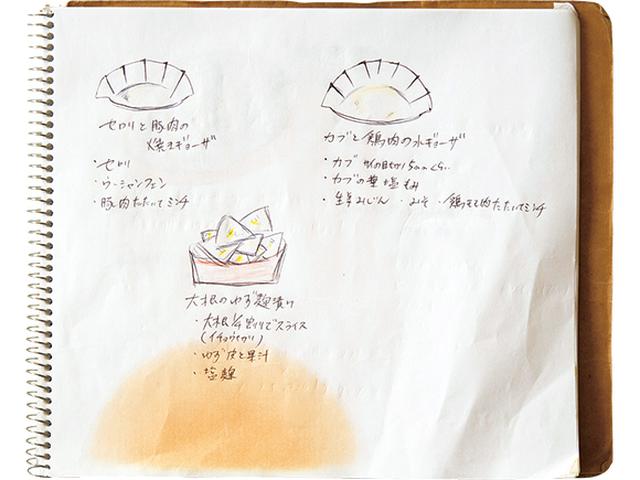 セロリと豚肉の
焼きギョーザ
・セロリ
・ウーシャンフェン
・豚肉たたいてミンチ
カブと鶏肉の水ギョーザ
・カブ さいの目切り5mmくらい
・カブの葉 塩もみ
・生姜みじん ・みそ ・鶏もも肉たたいてミンチ
大根のゆず麹漬け
・大根 1/4割りでスライス
(イチョウギリ)
・ゆず皮と果汁
・塩麹